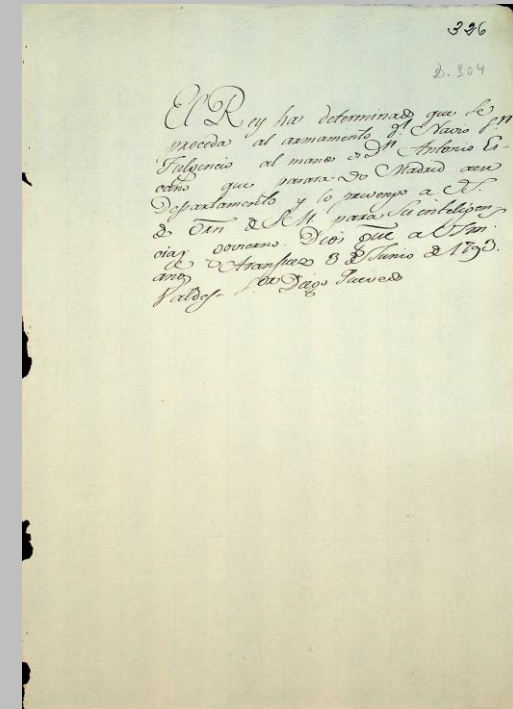 326
D. 304
El Rey ha determinado que se
proceda al armamento dl Navio Sn
Fulgencio al mando de Dn Antonio Es-
caño que pasara de Madrid a ese
Departamento y lo prevengo a V.
de Orn de S.M. para su inteligen
cia y govierno. Dios gue a V. m.
as Aranjuez 3 de Junio de 1793.
Valdes- Sor Diego Quevedo